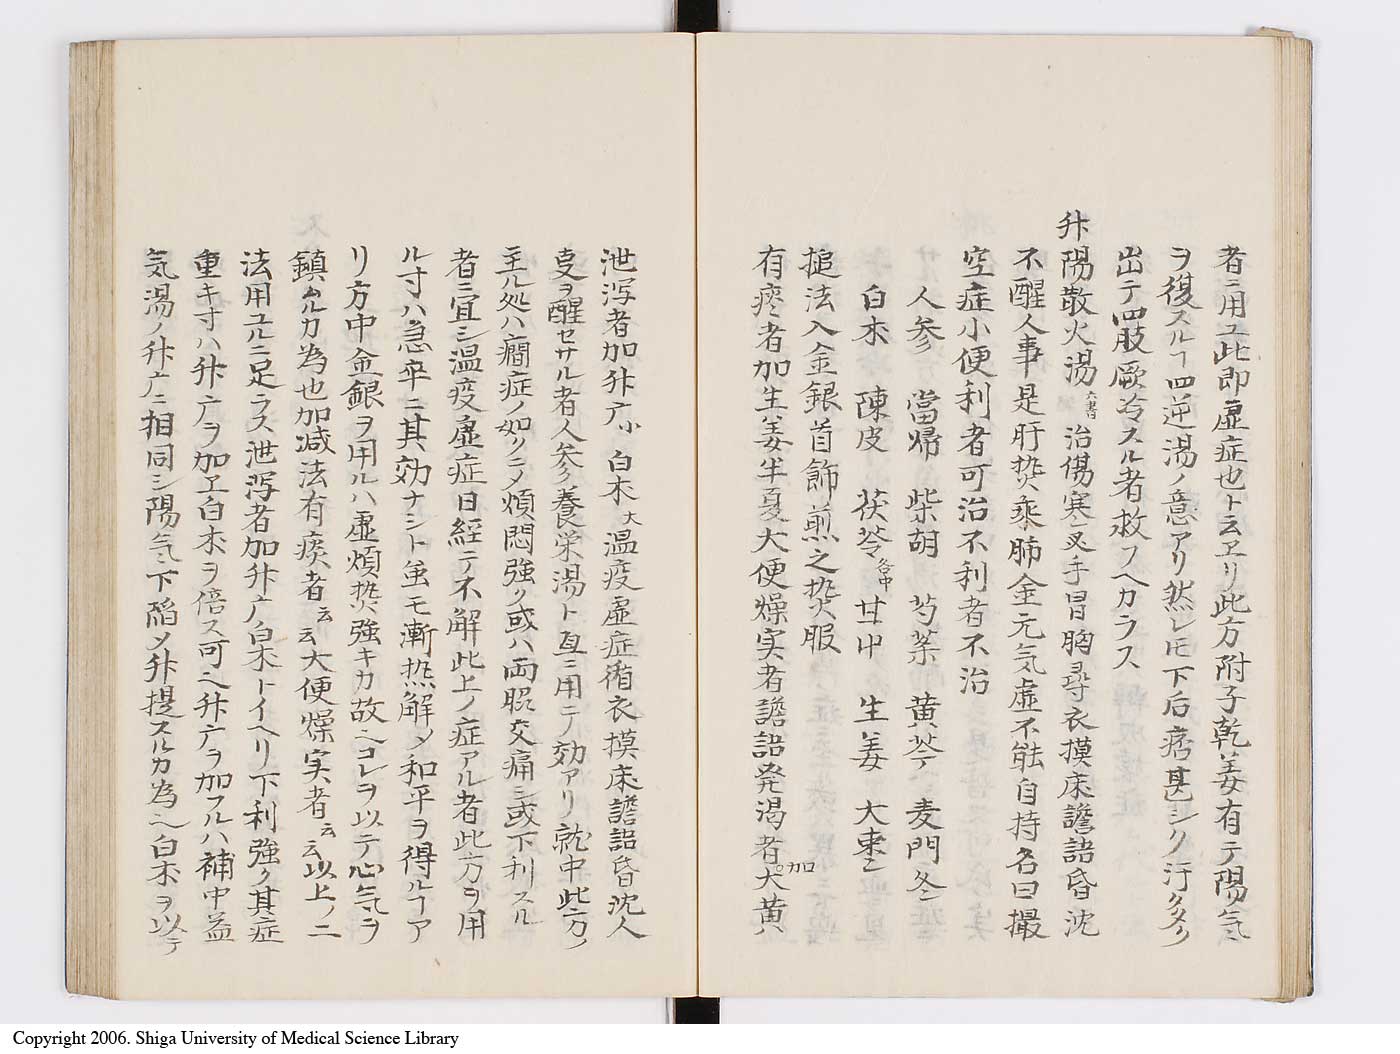 者ニ用ユ此即虚症也ト云ヱリ此方附子乾姜有テ陽気ヲ
ヲ復スルヿ四逆湯ノ意アリ然レ𪜈下后痞甚シク汗夕多ク
出テ四肢厥冷スル者救フヘカラス
升陽散火湯 六書 治傷寒叉手冒胸尋衣摸床譫語昏沈
不醒人事是肝热乘肺金元気虚不能自持名曰撮
空症小便利者可治不利者不治
人参 當帰 柴胡 芍薬 黄芩 麦門冬
白朮 陳皮 茯苓 各中 甘艸 生姜 大棗
搥法入金銀首飾煎之热服
有痰者加生姜半夏大便燥実者譫語発渇者加大黄
泄瀉者加升广小白朮大温疫虚症循衣摸床譫語昏沈人
叓ヲ醒セサル者人参養栄湯ト互ニ用テ効アリ就中此方ノ
主ル処ハ癇症ノ如クニメ煩悶強ク或ハ両脇交痛シ或下利スル
者ニ宜シ温疫虚症日経テ不解此上ノ症アル者此方ヲ用
ル寸ハ急卒ニ其効ナシト虽モ漸热解メ和平ヲ得ルヿア
リ方中金銀ヲ用ルハ虚煩热強キカ故ヘコレヲ以テ心気ヲ
鎮ムルカ為也加減法有痰者云云大便燥実者云云以上ノ二
法用ユルニ足ラス泄瀉者加升广白朮トイヘリ下利強ク其症
重キ寸ハ升广ヲ加ヱ白朮ヲ倍ス可ヘ升广ヲ加フルハ補中益
気湯ノ升广ニ相同シ陽気下陥メ升提スルカ為ヘ白朮ヲ以テ
Copyright 2006. Shiga University of Medical Science Library